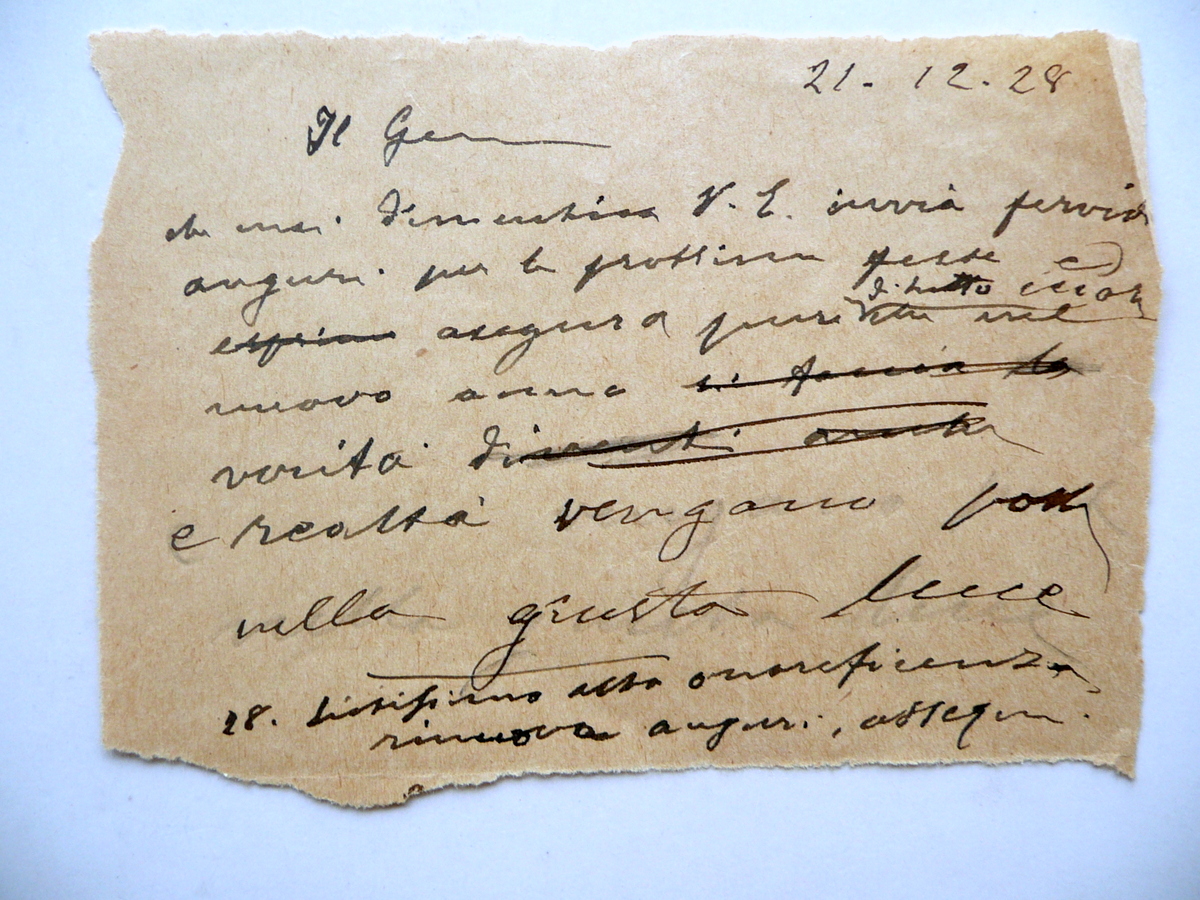 21. 12. 28
Il Gen
che mai dimentica V. E. invia fervidi
auguri per le prossime feste e
di tutto
esprime augura pure nel
nuovo anno si faccia la
verità diventi
e realtà vengano poste
nella giusta luce
28. lietissimo alta onoreficenza
rinnova auguri, ossequi.